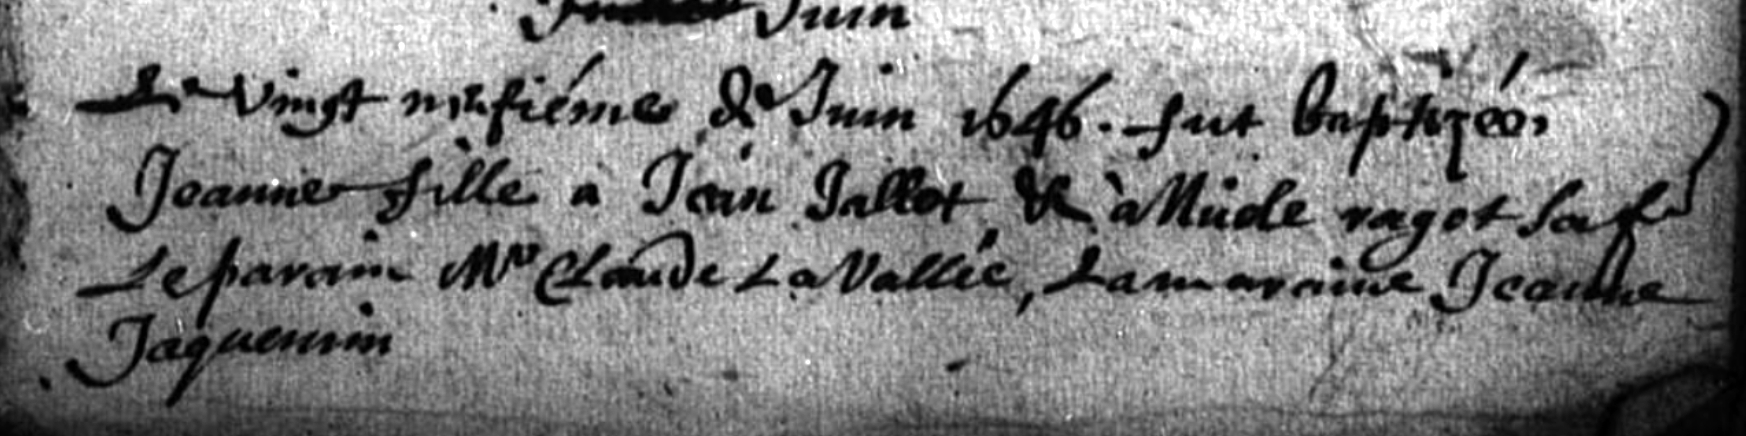 Juin
Le Vingt neufiéme de Juin 1646. fut baptizée,
Jeanne fille a Jean Jallot & à Mude ragot sa f
Le parain Mre Claude La Vallée, La maraine Jeanne
Jaquemin